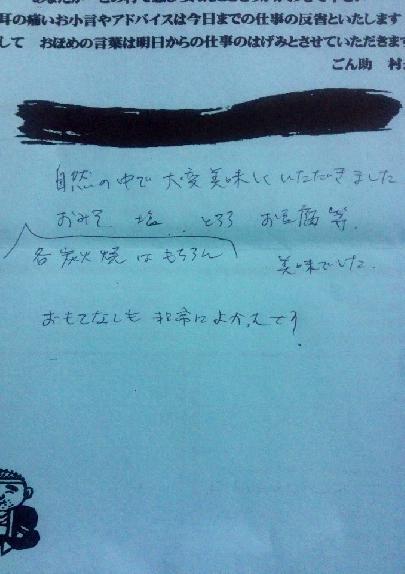 耳の痛いお小言やアドバイスは今日までの仕事の反省といたします
して おほめの言葉は明日からの仕事のはげみとさせていただきます
ごん助 村
自然の中で 大変美味しく いただきました
おみそ 塩 とろろ お豆腐 等、
各炭火焼はもちろん 美味でした。
おもてなしも 非常によかったです